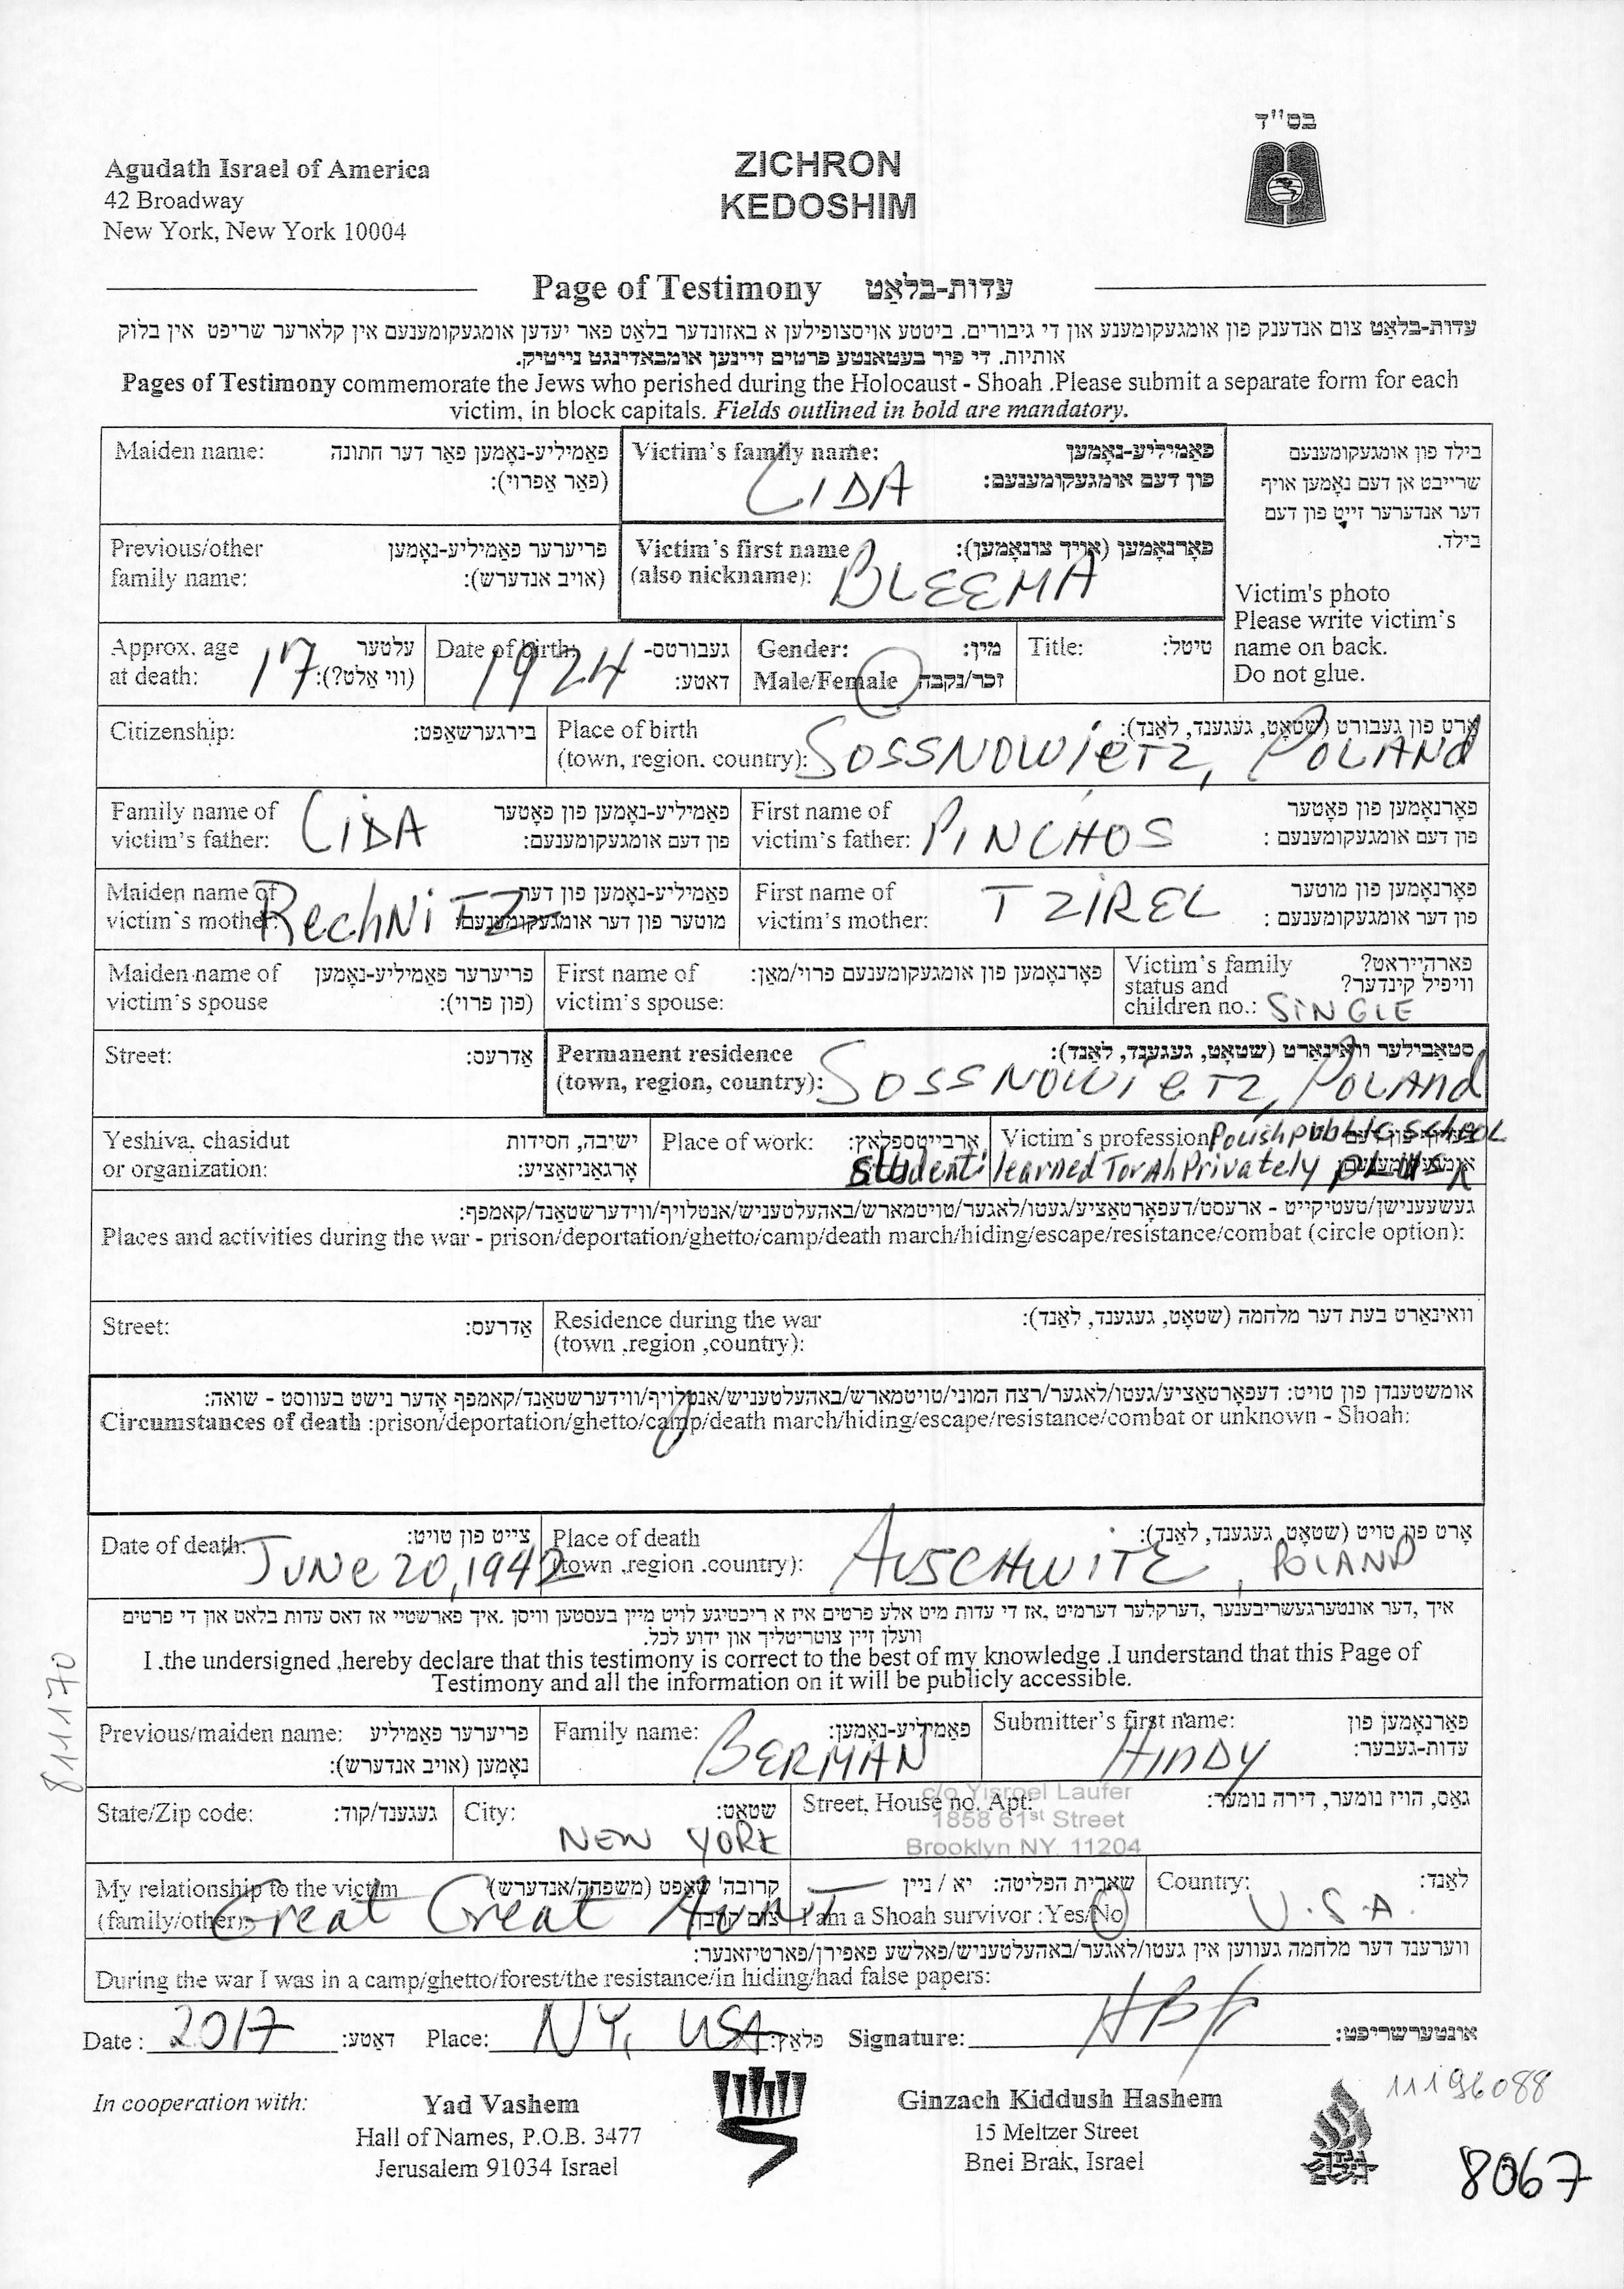 בס"ד
Agudath Israel of America
42 Broadway
New York, New York 10004
ZICHRON
KEDOSHIM
Page of Testimony עדות-בלאַט
עדות-בלאַט צום אנדענק פון אומגעקומענע און די גיבורים. ביטטע אויסצופילען א באזונדער בלאַט פאר יעדען אומגעקומענעם אין קלארער שריפט אין בלוק
אותיות. די פיר בעטאנטע פרטים זיינען אומבאדינגט נייטיק.
Pages of Testimony commemorate the Jews who perished during the Holocaust - Shoah .Please submit a separate form for each
victim, in block capitals. Fields outlined in bold are mandatory.
Maiden name: פאַמיליע-נאָמען פאַר דער חתונה
(פאַר אַפרוי):
Victim's family name: פאַמיליע-נאָמען
פון דעם אומגעקומענעם:
LIDA
בילד פון אומגעקומענעם
שרייבט אן דעם נאָמען אויף
דער אנדערער זייט פון דעם
בילד.
Previous/other פריערער פאַמיליע-נאָמען
family name: (אויב אנדערש):
Victim's first name פאָרנאָמען (אויך צונאָמען):
(also nickname): BLEEMA
Victim's photo
Please write victim's
name on back.
Do not glue.
Approx. age עלטער
at death: 17 (ווי אַלט?):
Date of birth: געבורטס-
דאטע:
1924
Gender: מין:
Male/Female זכר/נקבה
Title: טיטל:
Citizenship: בירגערשאַפט:
Place of birth אָרט פון געבורט (שטאָט, געגענד, לאַנד):
(town, region. country): SOSSNOWIETZ, POLAND
Family name of פאַמיליע-נאָמען פון פאָטער
victim's father: LIDA פון דעם אומגעקומענעם:
First name of פאָרנאָמען פון פאָטער
victim's father: PINCHOS פון דעם אומגעקומענעם :
Maiden name of פאַמיליע-נאָמען פון דער
victim's mother: RechNiTZ מוטער פון דער אומגעקומענעם:
First name of פאָרנאָמען פון מוטער
victim's mother: TZIREL פון דער אומגעקומענעם :
Maiden name of פריערער פאַמיליע-נאָמען
victim's spouse (פון פרוי):
First name of פאָרנאָמען פון אומגעקומענעם פרוי/מאַן:
victim's spouse:
Victim's family פארהייראט?
status and וויפיל קינדער?
children no.: SINGLE
Street: אַדרעס:
Permanent residence סטאַבילער וואױנאָרט (שטאָט, געגענד, לאַנד):
(town, region, country): SOSSNOWIETZ, POLAND
Yeshiva, chasidut ישיבה, חסידות
or organization: אָרגאַניזאַציע:
Place of work: אַרבייטספּלאַץ:
Victim's profession Polish public school
Student learned Torah Privately plus
געשעענישן/טעטיקייט - ארעסט/דעפּאָרטאַציע/געטו/לאגער/טויטמארש/באהעלטעניש/אנטלויף/ווידערשטאַנד/קאמפף:
Places and activities during the war - prison/deportation/ghetto/camp/death march/hiding/escape/resistance/combat (circle option):
Street: אַדרעס:
Residence during the war וואױנאָרט בעת דער מלחמה (שטאָט, געגענד, לאַנד):
(town ,region ,country):
אומשטענדן פון טויט: דעפּאָרטאַציע/געטו/לאגער/רצח המוני/טויטמארש/באהעלטעניש/אנטלויף/ווידערשטאַנד/קאמפף אָדער נישט בעוווסט - שואה:
Circumstances of death :prison/deportation/ghetto/camp/death march/hiding/escape/resistance/combat or unknown - Shoah:
Date of death: צייט פון טויט:
JUNe 20, 1942
Place of death אָרט פון טויט (שטאָט, געגענד, לאַנד):
(town ,region .country): AUSCHWITZ, POLAND
איך ,דער אונטערגעשריבענער ,דערקלער דערמיט ,אז די עדות מיט אלע פרטים איז א ריכטיגע לויט מיין בעסטען וויסן .איך פארשטיי אז דאס עדות בלאט און די פרטים
וועלן זיין צוטריטליך און ידוע לכל.
I .the undersigned ,hereby declare that this testimony is correct to the best of my knowledge .I understand that this Page of
Testimony and all the information on it will be publicly accessible.
81170
Previous/maiden name: פריערער פאַמיליע
נאָמען (אויב אנדערש):
Family name: פאַמיליע-נאָמען:
BERMAN
Submitter's first name: פאָרנאָמען פון
עדות-געבער:
HINDY
State/Zip code: געגענד/קוד:
City: שטאָט:
NEW YORK
Street, House no. Apt: גאַס, הויז נומער, דירה נומער:
c/o Yisroel Laufer
1858 61st Street
Brooklyn NY. 11204
My relationship to the victim קרובה'שאַפט (משפּחה/אנדערש)
(family/other): Great Great AUNT
שארית הפליטה: יא / ניין
I am a Shoah survivor :Yes/No
Country: לאַנד:
U.S.A.
ווערענד דער מלחמה געווען אין געטו/לאגער/באהעלטעניש/פאלשע פאפירן/פארטיזאנער:
During the war I was in a camp/ghetto/forest/the resistance/in hiding/had false papers:
Date : 2017 דאַטע: Place: NY, USA פּלאַץ: Signature: אונטערשריפט:
In cooperation with:
Yad Vashem
Hall of Names, P.O.B. 3477
Jerusalem 91034 Israel
Ginzach Kiddush Hashem
15 Meltzer Street
Bnei Brak, Israel
11196088
8067